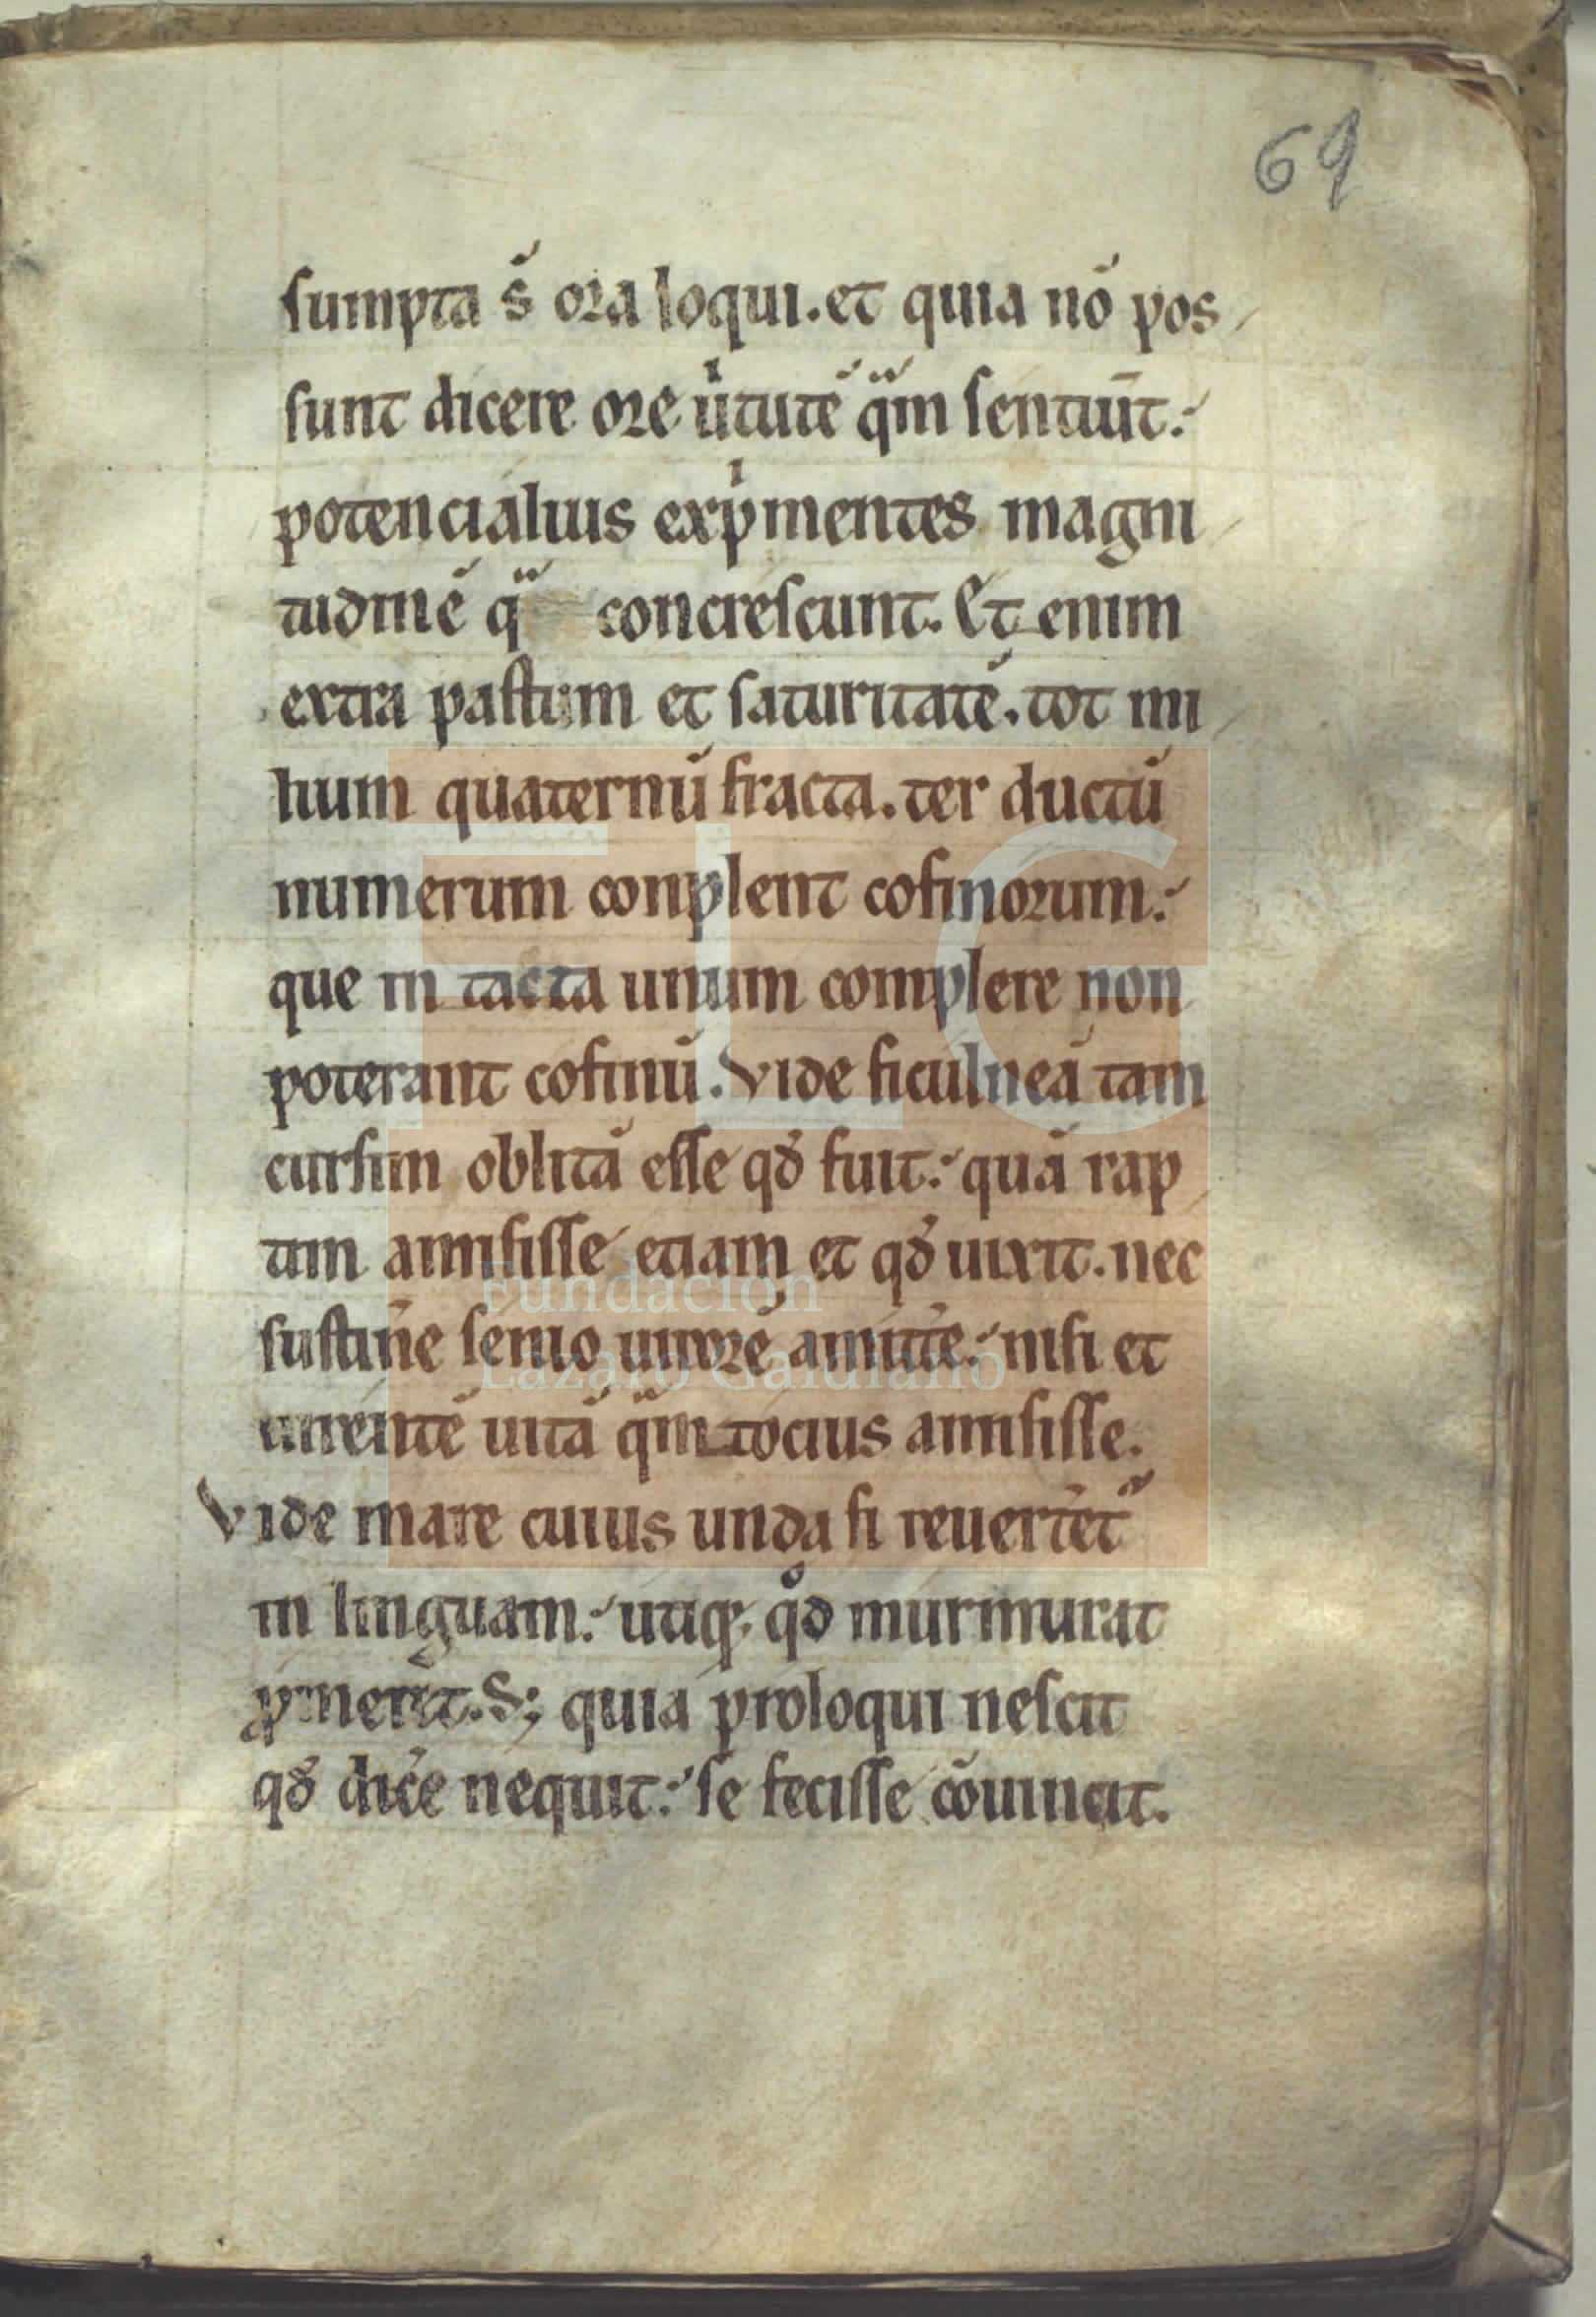 69
sumpta s̄ ora loqui. et quia nō pos
sunt dicere ore u̍tutē qͣm sentiūt.
potencialius exp̍mentes magni
tudinē qͣ concrescunt. Et enim
extra pastum et saturitatē. tot mi
hum quaternū fracta. ter ductū
numerum conplent cofinorum.
que in tacta unum complere non
poterant cofinū. Vide ficulneā tam
cursim oblitā esse qd̄ fuit. quā rap
tim ammisisse etiam et qd̄ uixit. nec
sustin̄e senio uirorē amitt̄e. nisi et
uirentē uitā qͣm tocius ammisisse.
Vide mare cuius unda si reuert̄et᷑
in linguam. utiqꝫ qd̊ murmurat
S; quia proloqui nescit
qd̄ dic̄e nequit. se fecisse cōuincit.
Fundación
Lázaro Galdiano
FLG